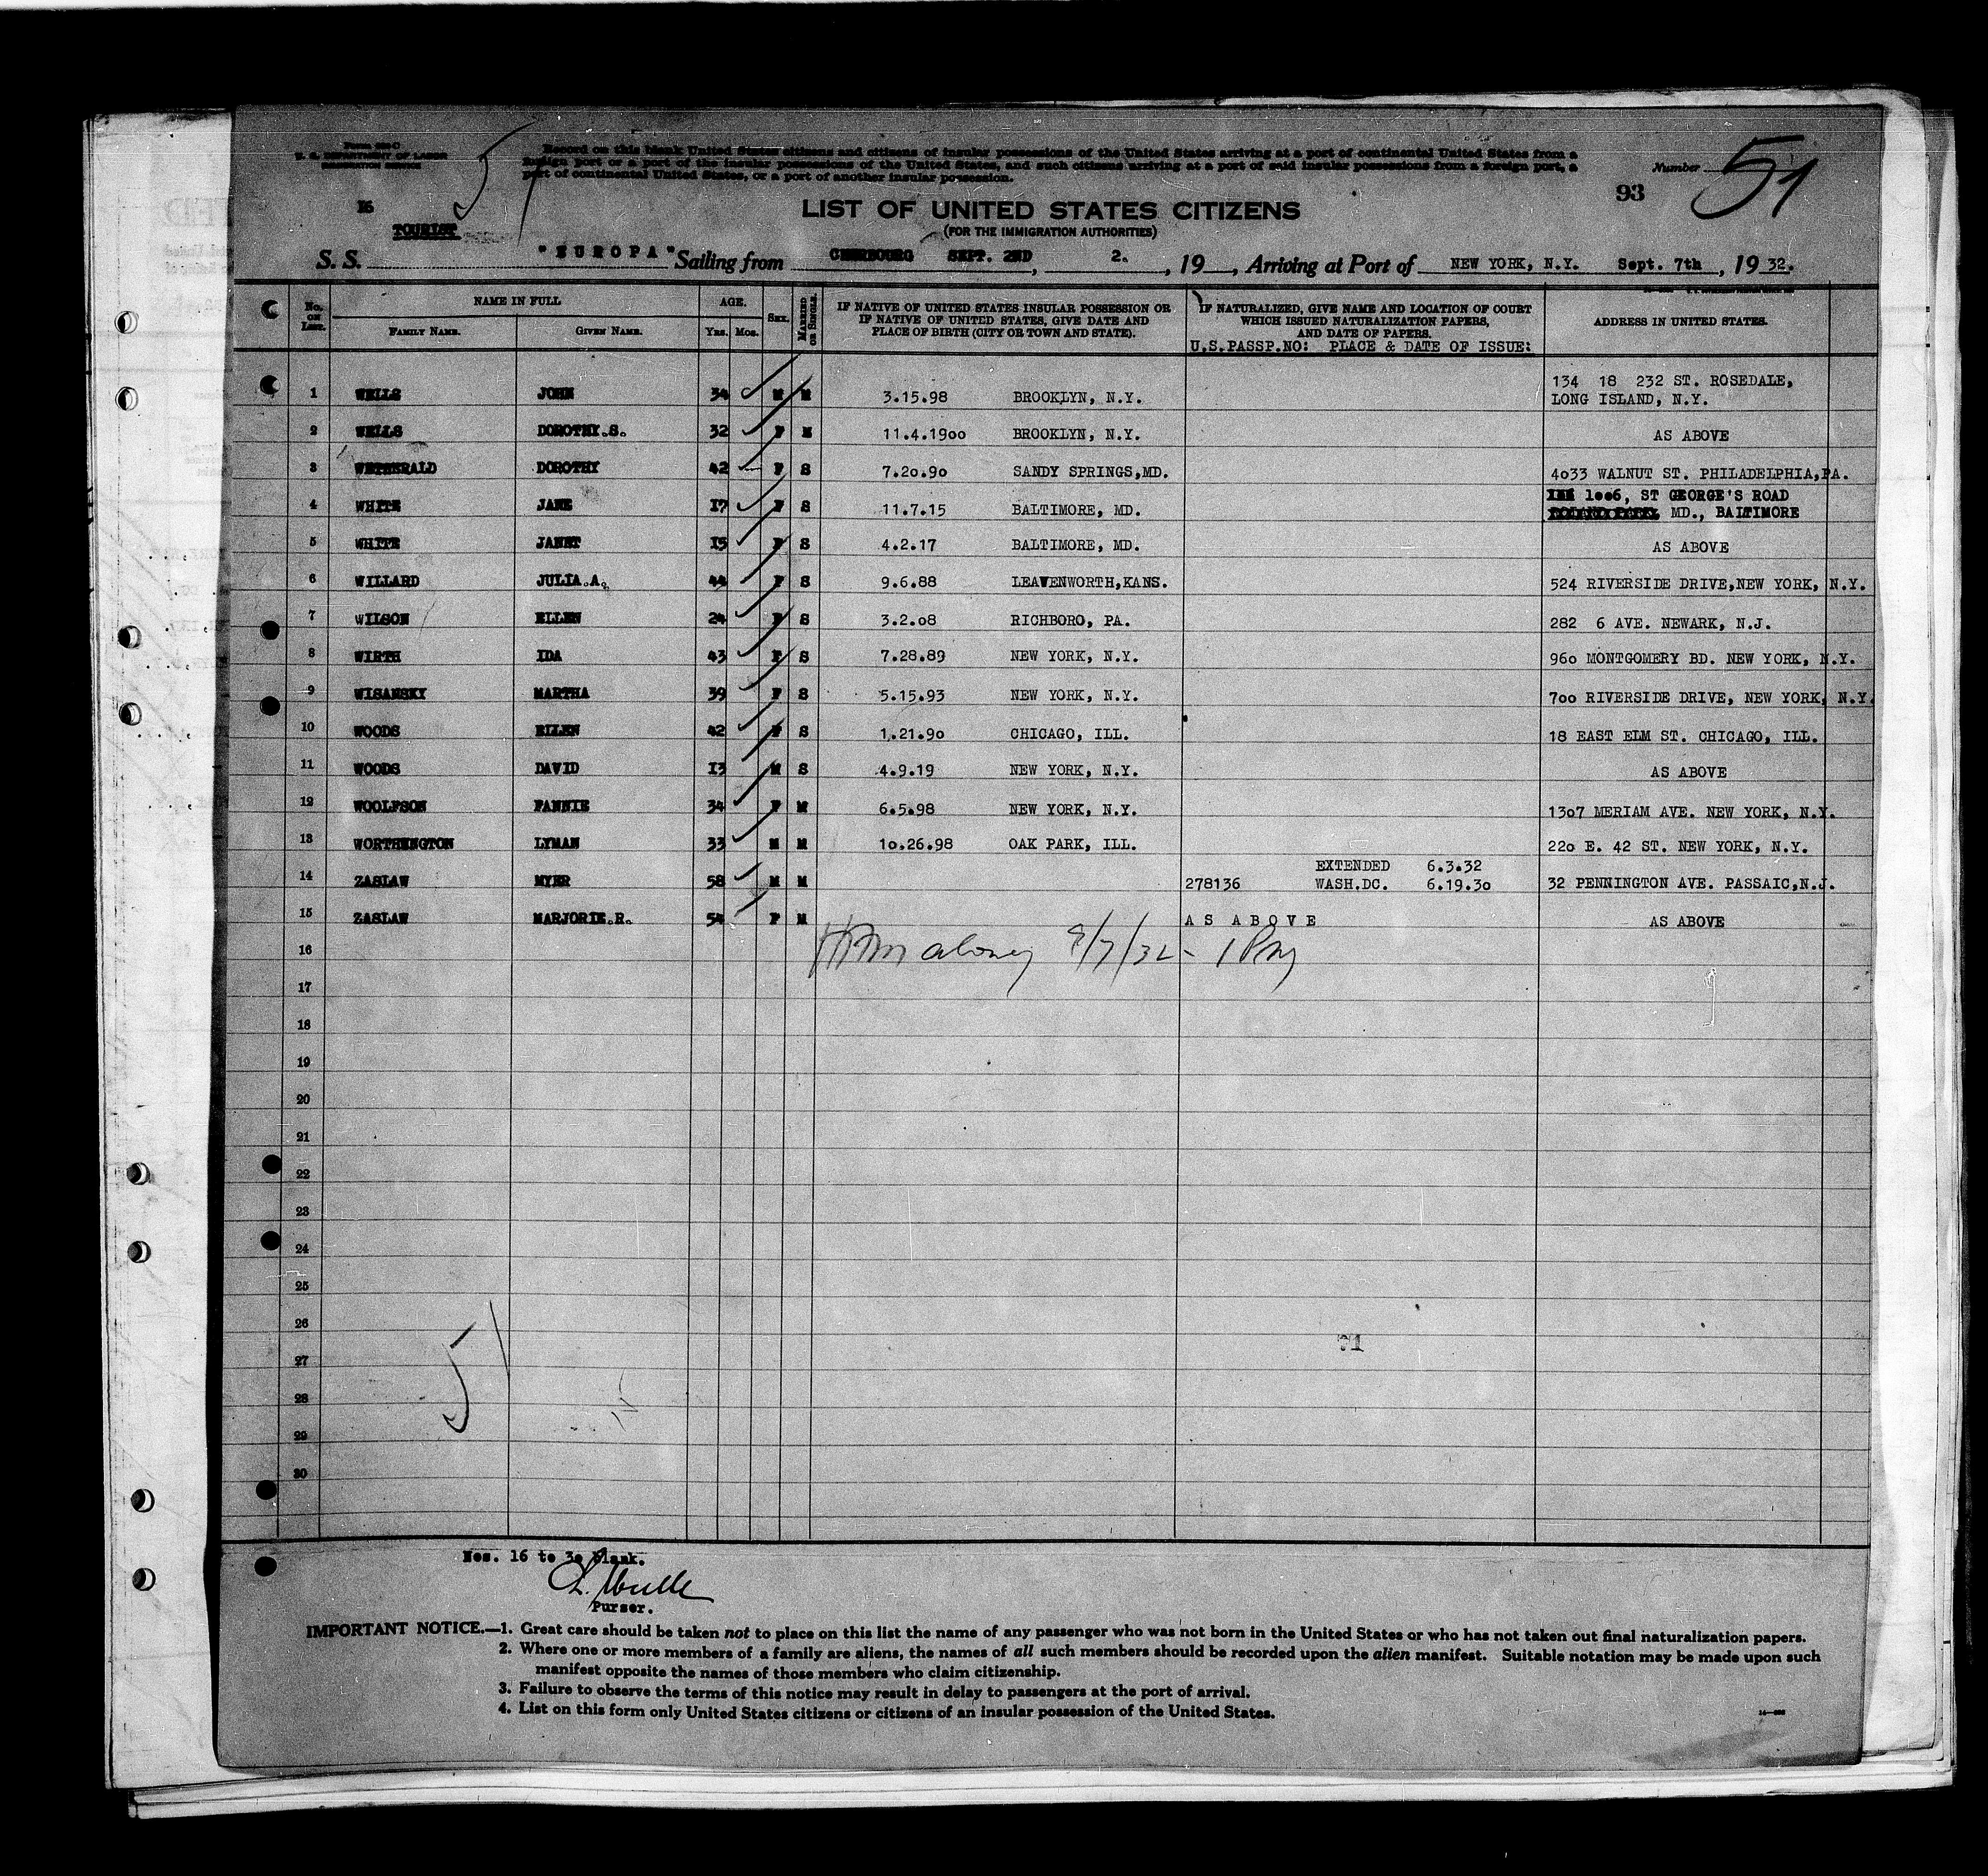 U. S. DEPARTMENT OF LABOR
IMMIGRATION SERVICE
51
Record on this blank United States citizens and citizens of insular possessions of the United States arriving at a port of continental United States from a
foreign port or a port of the insular possessions of the United States, and such citizens arriving at a port of said insular possessions from a foreign port, a
port of continental United States, or a port of another insular possession.
Number 51
93
16
TOURIST
LIST OF UNITED STATES CITIZENS
(FOR THE IMMIGRATION AUTHORITIES)
S. S. "EUROPA" Sailing from CHERBOURG SEPT. 2ND, 2., 19 , Arriving at Port of NEW YORK, N.Y. Sept. 7th, 19 32.
No. ON LIST. NAME IN FULL AGE. SEX. MARRIED OR SINGLE. IF NATIVE OF UNITED STATES INSULAR POSSESSION OR IF NATIVE OF UNITED STATES, GIVE DATE AND PLACE OF BIRTH (CITY OR TOWN AND STATE). IF NATURALIZED, GIVE NAME AND LOCATION OF COURT WHICH ISSUED NATURALIZATION PAPERS, AND DATE OF PAPERS. ADDRESS IN UNITED STATES.
FAMILY NAME. GIVEN NAME. YRS. MOS. U.S.PASSP.NO: PLACE & DATE OF ISSUE:
1 WELLS JOHN 34 M M 3.15.98 BROOKLYN, N.Y. 134 18 232 ST. ROSEDALE,
LONG ISLAND, N.Y.
2 WELLS DOROTHY.S. 32 F M 11.4.1900 BROOKLYN, N.Y. AS ABOVE
3 WETHERALD DOROTHY 42 F S 7.20.90 SANDY SPRINGS,MD. 4033 WALNUT ST. PHILADELPHIA,PA.
4 WHITE JANE 17 F S 11.7.15 BALTIMORE, MD. 1006, ST GEORGE'S ROAD
MD., BALTIMORE
5 WHITE JANET 15 F S 4.2.17 BALTIMORE, MD. AS ABOVE
6 WILLARD JULIA.A. 44 F S 9.6.88 LEAVENWORTH,KANS. 524 RIVERSIDE DRIVE,NEW YORK, N.Y.
7 WILSON ELLEN 24 F S 3.2.08 RICHBORO, PA. 282 6 AVE. NEWARK, N.J.
8 WIRTH IDA 43 F S 7.28.89 NEW YORK, N.Y. 960 MONTGOMERY BD. NEW YORK, N.Y.
9 WISANSKY MARTHA 39 F S 5.15.93 NEW YORK, N.Y. 700 RIVERSIDE DRIVE, NEW YORK, N.Y.
10 WOODS EILEN 42 F S 1.21.90 CHICAGO, ILL. 18 EAST ELM ST. CHICAGO, ILL.
11 WOODS DAVID 13 M S 4.9.19 NEW YORK, N.Y. AS ABOVE
12 WOOLFSON FANNIE 34 F M 6.5.98 NEW YORK, N.Y. 1307 MERIAM AVE. NEW YORK, N.Y.
13 WORTHINGTON LYMAN 33 M M 10.26.98 OAK PARK, ILL. 220 E. 42 ST. NEW YORK, N.Y.
EXTENDED 6.3.32
14 ZASLAW MYER 58 M M 278136 WASH.DC. 6.19.30 32 PENNINGTON AVE. PASSAIC,N.J.
15 ZASLAW MARJORIE.R. 54 F M AS ABOVE AS ABOVE
16 9/7/32 - 1 PM
17
18
19
20
21
22
23
24
25
26
27
28
29
30
71
51
Nos. 16 to 30 blank.
Purser.
IMPORTANT NOTICE.—1. Great care should be taken not to place on this list the name of any passenger who was not born in the United States or who has not taken out final naturalization papers.
2. Where one or more members of a family are aliens, the names of all such members should be recorded upon the alien manifest. Suitable notation may be made upon such
manifest opposite the names of those members who claim citizenship.
3. Failure to observe the terms of this notice may result in delay to passengers at the port of arrival.
4. List on this form only United States citizens or citizens of an insular possession of the United States.